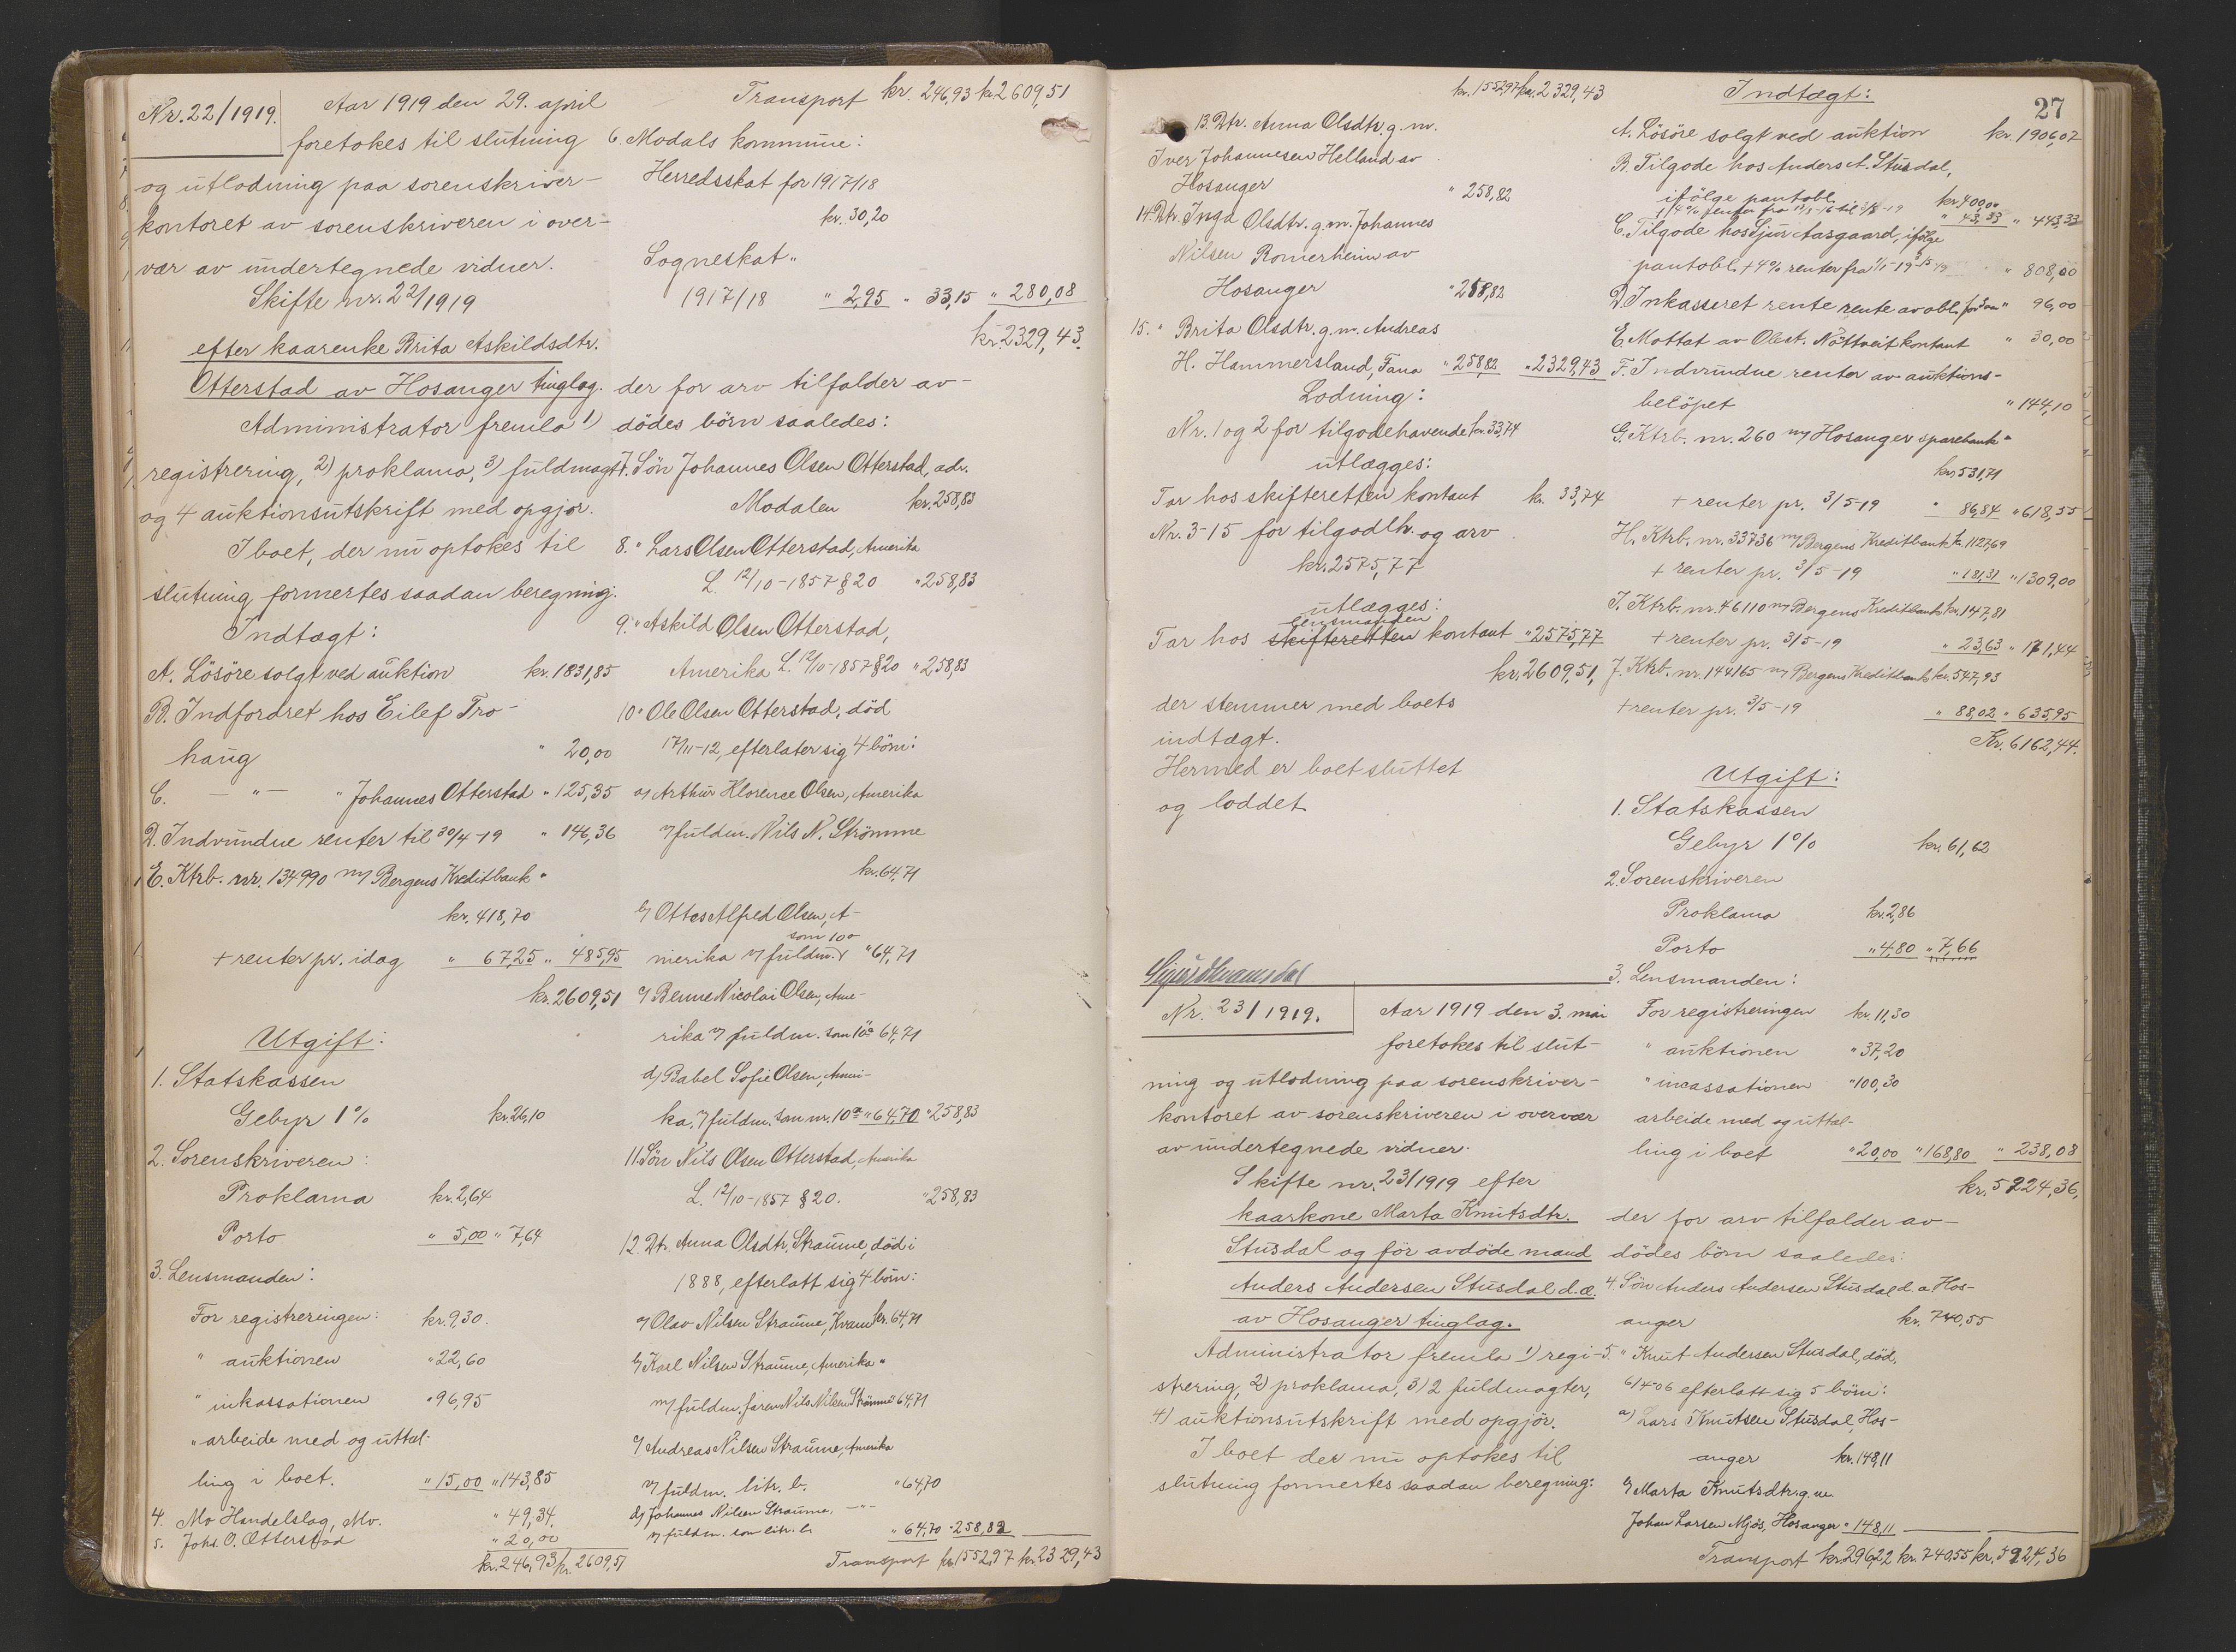 Nr. 22/1919.
Aar 1919 den 29. april
foretokes til slutning
og utlodning paa sorenskriver-
kontoret av sorenskriveren i over-
vær av undertegnede vidner.
Skifte nr. 22/1919
efter kaarenke Brita Askildsdtr.
Otterstad av Hosanger tinglag.
Administrator fremla 1)
registrering, 2) proklama, 3) fuldmagt
og 4 auktionsutskrift med opgjør.
I boet, der nu optokes til
slutning formertes saadan beregning.
Indtægt:
A. Lösöre solgt ved auktion kr. 1831,85
B. Indfordret hos Eilef Tro-
haug " 20,00
C. — " — " Johannes Otterstad " 125,35
D. Indvundne renter til 30/4-19 " 146,36
E. Ktrb. nr. 134990 m/ Bergens Kreditbank "
kr. 418,70
+ renter pr. idag " 67,25 " 485,95
kr. 2609,51
Utgift:
1. Statskassen
Gebyr 1% kr. 26,10
2. Sorenskriveren:
Proklama kr. 2,64
Porto " 5,00 " 7,64
3. Lensmanden:
For registreringen: kr. 9,30.
" auktionen " 22,60
" inkassationen " 96,95
" arbeide med og uttæl-
ling i boet. " 15,00 " 143,85
4. Mo Handelslag, Mo. " 49,34
5. Johs. O. Otterstad " 20,00
kr. 246,93 kr. 2609,51
Transport kr. 246,93 kr. 2609,51
6. Modals kommune:
Herredsskat for 1917/18
kr. 30,20
Sogneskat "
1917/18 " 2,95 " 33,15 " 280,08
kr. 2329,43.
der for arv tilfalder av-
dödes börn saaledes:
7. Sön Johannes Olsen Otterstad, adr.
Modalen kr. 258,83
8. " Lars Olsen Otterstad, Amerika
L. 12/10-1857 § 20 " 258,83
9. " Askild Olsen Otterstad,
Amerika L. 12/10-1857 § 20 " 258,83
10 " Ole Olsen Otterstad, död
17/11-12, efterlater sig 4 börn:
a) Arthur Klorence Olsen, Amerika
v/ fuldm. Nils N. Strömme
kr. 64,71
b) Ottes Alfred Olsen, A-
som 10 a
merika v/ fuldm. " 64,71
c) Benne Nicolai Olsen, Ame-
rika v/ fuldm. som 10a " 64,71
d) Babel Sofie Olsen, Ameri-
ka, v/ fuldm. som nr. 10a " 64,70 " 258,83
11. Sön Nils Olsen Otterstad, Amerika
L. 12/10-1857 § 20. " 258,83
12. Dtr. Anna Olsdtr. Straume, död i
1888, efterlatt sig 4 börn:
a) Olav Nilsen Straume, Kvam kr. 64,71
b) Karl Nilsen Straume, Amerika "
m/ fuldm. faren Nils Nilsen Strömme 64,71
c) Andreas Nilsen Straume, Amerika
v/ fuldm. litr. b. " 64,70
d) Johannes Nilsen Straume, — " —
v/ fuldm. som litr. b. " 64,70 " 258,82
Transport kr. 1552,97 kr. 2329,43
kr. 1552,97 kr. 2329,43
13. Dtr. Anna Olsdtr. g. m.
Iver Johannesen Helland av
Hosanger " 258,82
14. Dtr. Inga Olsdtr. g. m. Johannes
Nilsen Romerheim av
Hosanger " 258,82
15. " Brita Olsdtr. g. m. Andreas
H. Hammersland, Fana " 258,82 " 2329,43
Lodning:
Nr. 1 og 2 for tilgodehavende kr. 33,74
utlægges:
Tar hos skifteretten kontant kr. 33,74
Nr. 3-15 for tilgodeh. og arv
kr. 2575,77
utlægges:
lensmanden
Tar hos skifteretten kontant " 2575,77
kr. 2609,51,
der stemmer med boets
indtægt.
Hermed er boet sluttet
og loddet
Nr. 23/1919.
Aar 1919 den 3. mai
foretokes til slut-
ning og utlodning paa sorenskriver-
kontoret av sorenskriveren i overvær
av undertegnede vidner.
Skifte nr. 23/1919 efter
kaarkone Marta Knutsdtr.
Stusdal og för avdöde mand
Anders Andersen Stusdal d. æ.
av Hosanger tinglag.
Administrator fremla 1) regi-
strering, 2) proklama, 3) 2 fuldmagter,
4) auktionsutskrift med opgjör.
I boet der nu optokes til
slutning formertes saadan beregning:
27
Indtægt:
A. Lösöre solgt ved auktion kr. 1906,07
B. Tilgode hos Anders A. Stusdal,
ifölge pantobl. kr. 400,00
" 43,33 " 443,33
C. Tilgode hos Sjur Aasgaard, ifölge
pantobl. + 4% renter fra 1/1-19 - 3/5 19 " 808,00
D. Inkasseret rente rente av obl. " 96,00
E. Mottat av Olest. Nöttveit kontant " 30,00
F. Indvundne renter av auktions-
belöpet " 144,10
G. Ktrb. nr. 260 m/ Hosanger sparebank "
kr. 531,71
+ renter pr. 3/5-19 " 86,84 " 618,55
H. Ktrb. nr. 33736 m/ Bergens Kreditbank kr. 1127,69
+ renter pr. 3/5-19 " 181,31 " 1309,00
I. Ktrb. nr. 46110 m/ Bergens Kreditbank kr. 147,81
+ renter pr. 3/5-19 " 23,63 " 171,44
J. Ktrb. nr. 144165 m/ Bergens Kreditbank kr. 547,93
+ renter pr. 3/5-19 " 88,02 " 635,95
Kr. 6162,44.
Utgift:
1. Statskassen
Gebyr 1% kr. 61,62
2. Sorenskriveren
Proklama kr. 2,86
Porto " 4,80 " 7,66
3. Lensmanden:
For registreringen kr. 11,30
" auktionen " 37,20
" incassationen " 100,30
arbeide med og uttæl-
ling i boet " 20,00 " 168,80 " 238,08
kr. 5924,36,
der for arv tilfalder av-
dödes börn saaledes:
4. Sön Anders Andersen Stusdal d. a Hos-
anger kr. 740,55
5. " Knut Andersen Stusdal, död,
6/4-06 efterlatt sig 5 börn:
a) Lars Knutsen Stusdal, Hos-
anger kr. 148,11
b) Marta Knutsdtr. g. m.
Johan Larsen Mjös, Hosanger " 148,11
Transport kr. 296,22 kr. 740,55 kr. 5924,36